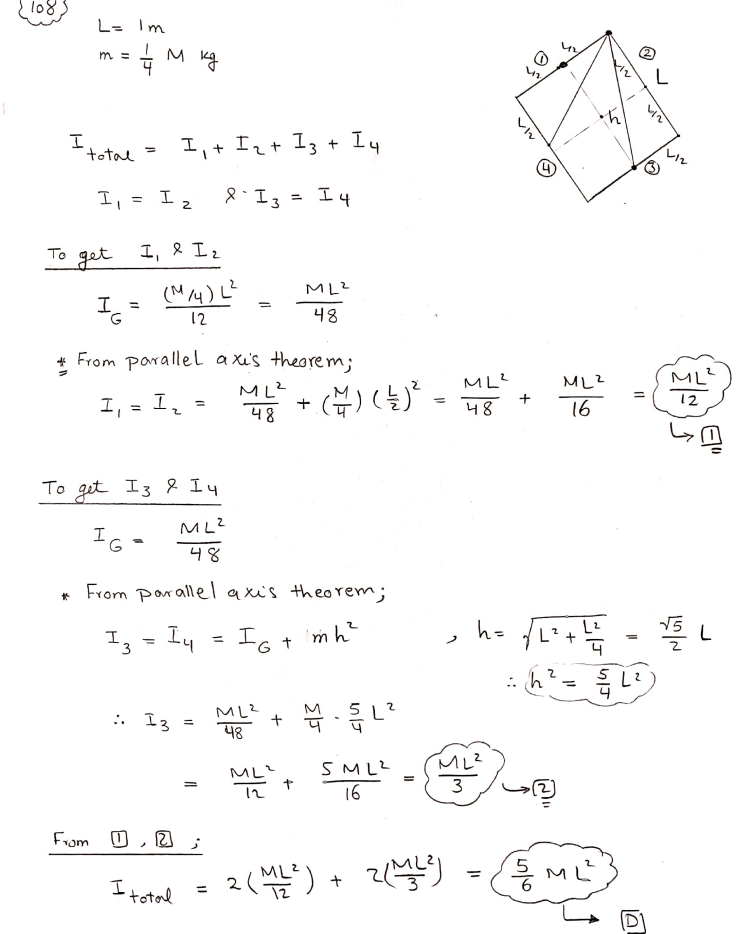 108
L = 1m
m = 1/4 M kg
① L/2 L/2 ② L/2 L L/2 h L/2 L/2 ④ ③
I total = I₁ + I₂ + I₃ + I₄
I₁ = I₂ & I₃ = I₄
To get I₁ & I₂
I_G = (M/4) L² / 12 = ML² / 48
* From parallel axis theorem;
I₁ = I₂ = ML²/48 + (M/4) (L/2)² = ML²/48 + ML²/16 = ML²/12
↳ 1
To get I₃ & I₄
I_G = ML²/48
* From parallel axis theorem;
I₃ = I₄ = I_G + mh² , h = √(L² + L²/4) = √5/2 L
∴ h² = 5/4 L²
∴ I₃ = ML²/48 + M/4 · 5/4 L²
= ML²/12 + 5ML²/16 = ML²/3 → 2
From 1 , 2 ;
I total = 2(ML²/12) + 2(ML²/3) = 5/6 ML²
→ D